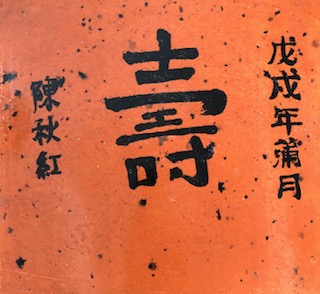 戊戌年蒲月
壽
陳秋紅